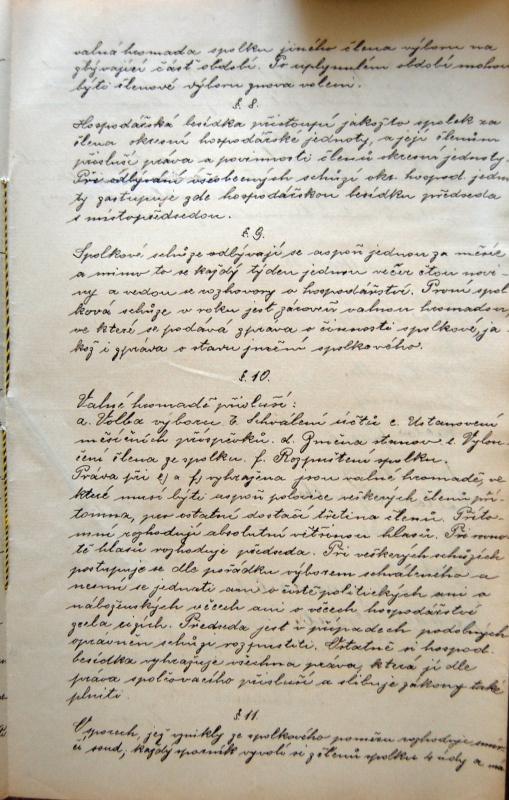 valná hromada spolku jiného člena výboru na
zbývající část období. Po uplynulém období mohou
býti členové výboru znova voleni.
§. 8.
Hospodářská besídka přistoupí jakožto spolek za
člena okresní hospodářské jednoty, a její členům
přísluší práva a povinnosti členů okresní jednoty.
Při odbývání všeobecných schůzí okr. hospod. jedno
ty zastupuje zde hospodářskou besídku předseda
s místopředsedou.
§. 9.
Spolkové schůze odbývají se aspoň jednou za měsíc
a mimo to se každý týden jednou večer čtou novi
ny a vedou se rozhovory o hospodářství. První spol
ková schůze v roku jest zároveň valnou hromadou,
ve které se podává zpráva o činnosti spolkové, ja
kož i zpráva o stavu jmění spolkového.
§. 10.
Valné hromadě přísluší:
a. Volba výboru b. Schválení účtů c. Ustanovení
měsíčních příspěvků. d. Změna stanov e. Vylou
čení člena ze spolku. f. Rozpuštění spolku.
Práva při e) a f) vyhražena jsou valné hromadě, ve
které musí býti aspoň polovice veškerých členů pří
tomna, pro ostatní dostačí třetina členů. Příto
mní rozhodují absolutní většinou hlasů. Při rovno
tě hlasů rozhoduje předseda. Při veškerých schůzích
postupuje se dle pořádku výborem schváleného a
nesmí se jednati ani o čistě politických ani o
náboženských věcech ani o věcech hospodářství
zcela cizích. Předseda jest v případech podobných
oprávněn schůzi rozpustiti. Ostatně si hospod.
besídka vyhražuje všechna práva, která jí dle
práva spolčovacího přísluší a slibuje zákony také
plniti
§ 11.
V sporech, jež vznikly ze spolkového poměru rozhoduje smír
čí soud, každý sporník vyvolí si z členů spolku 4 údy a